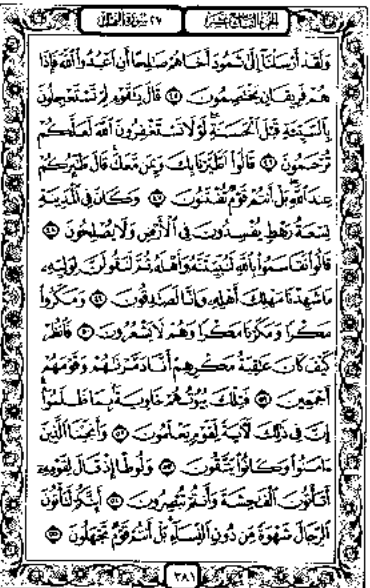 الجزء التاسع عشر ٢٧ سورة النمل
وَلَقَدْ أَرْسَلْنَا إِلَىٰ ثَمُودَ أَخَاهُمْ صَالِحًا أَنِ اعْبُدُوا اللَّهَ فَإِذَا
هُمْ فَرِيقَانِ يَخْتَصِمُونَ ﴿٤٥﴾ قَالَ يَا قَوْمِ لِمَ تَسْتَعْجِلُونَ
بِالسَّيِّئَةِ قَبْلَ الْحَسَنَةِ لَوْلَا تَسْتَغْفِرُونَ اللَّهَ لَعَلَّكُمْ
تُرْحَمُونَ ﴿٤٦﴾ قَالُوا اطَّيَّرْنَا بِكَ وَبِمَن مَّعَكَ قَالَ طَائِرُكُمْ
عِندَ اللَّهِ بَلْ أَنتُمْ قَوْمٌ تُفْتَنُونَ ﴿٤٧﴾ وَكَانَ فِي الْمَدِينَةِ
تِسْعَةُ رَهْطٍ يُفْسِدُونَ فِي الْأَرْضِ وَلَا يُصْلِحُونَ ﴿٤٨﴾
قَالُوا تَقَاسَمُوا بِاللَّهِ لَنُبَيِّتَنَّهُ وَأَهْلَهُ ثُمَّ لَنَقُولَنَّ لِوَلِيِّهِ
مَا شَهِدْنَا مَهْلِكَ أَهْلِهِ وَإِنَّا لَصَادِقُونَ ﴿٤٩﴾ وَمَكَرُوا
مَكْرًا وَمَكَرْنَا مَكْرًا وَهُمْ لَا يَشْعُرُونَ ﴿٥٠﴾ فَانظُرْ
كَيْفَ كَانَ عَاقِبَةُ مَكْرِهِمْ أَنَّا دَمَّرْنَاهُمْ وَقَوْمَهُمْ
أَجْمَعِينَ ﴿٥١﴾ فَتِلْكَ بُيُوتُهُمْ خَاوِيَةً بِمَا ظَلَمُوا
إِنَّ فِي ذَٰلِكَ لَآيَةً لِّقَوْمٍ يَعْلَمُونَ ﴿٥٢﴾ وَأَنجَيْنَا الَّذِينَ
آمَنُوا وَكَانُوا يَتَّقُونَ ﴿٥٣﴾ وَلُوطًا إِذْ قَالَ لِقَوْمِهِ
أَتَأْتُونَ الْفَاحِشَةَ وَأَنتُمْ تُبْصِرُونَ ﴿٥٤﴾ أَئِنَّكُمْ لَتَأْتُونَ
الرِّجَالَ شَهْوَةً مِّن دُونِ النِّسَاءِ بَلْ أَنتُمْ قَوْمٌ تَجْهَلُونَ ﴿٥٥﴾
٣٨١